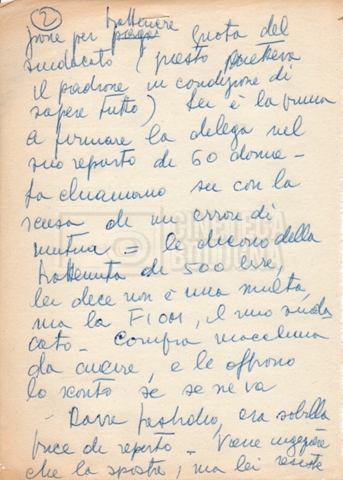 ② trattenere
zione per paga quota del
sindacato (questo metteva
il padrone in condizione di
sapere tutto) Lei è la prima
a firmare la delega nel
suo reparto di 60 donne –
la chiamano su con la
scusa di un errore di
mutua = le dicono della
trattenuta di 500 lire,
lei dice non è una multa,
ma la FIOM, il mio sinda
cato – Compra macchina
da cucire, e le offrono
lo sconto se se ne va
– Darre fastidio, era sobilla
trice di reparto – Viene ingegnere
che la sposta, ma lei resiste
CINETECA
BOLOGNA